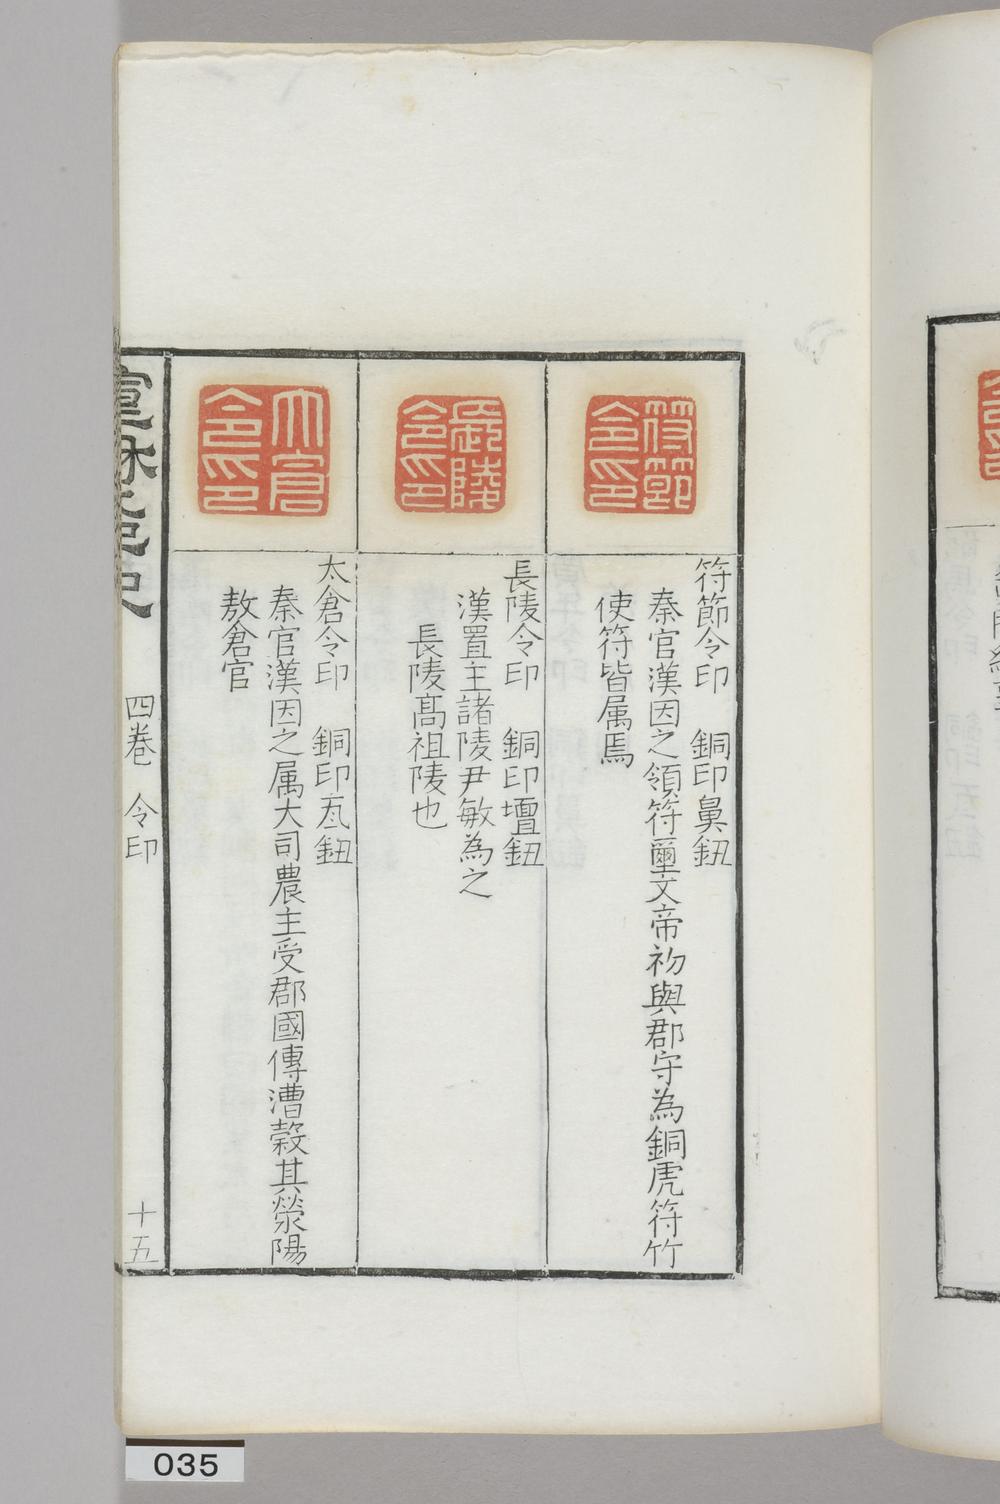 符節令印
符節令印　銅印鼻鈕
秦官漢因之領符璽文帝初與郡守為銅虎符竹
使符皆属焉
長陵令印
長陵令印　銅印壇鈕
漢置主諸陵尹敏為之
長陵髙祖陵也
大倉令印
太倉令印　銅印瓦鈕
秦官漢因之属大司農主受郡國傳漕穀其滎陽
敖倉官
四巻　令印
十五
035